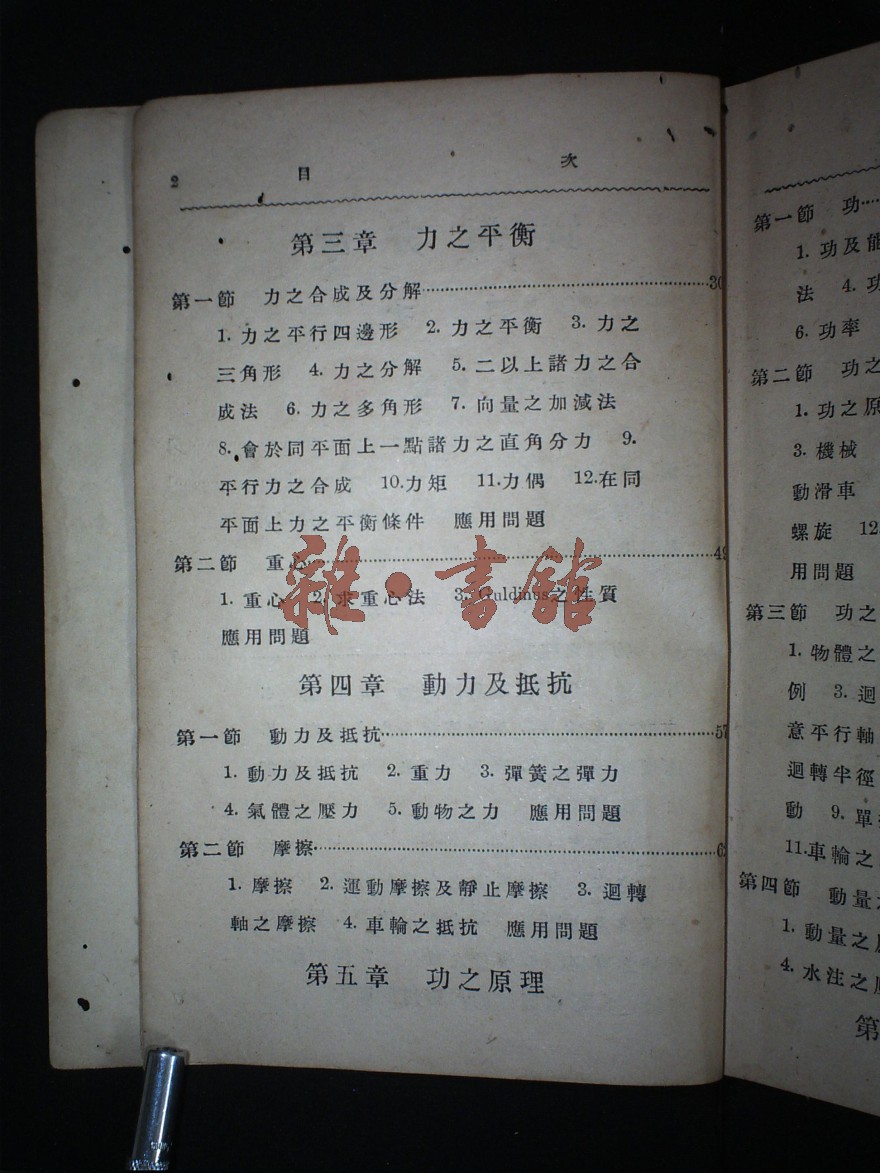 2 目 次
第三章 力之平衡
第一節 力之合成及分解……30
1. 力之平行四邊形 2. 力之平衡 3. 力之
三角形 4. 力之分解 5. 二以上諸力之合
成法 6. 力之多角形 7. 向量之加減法
8. 會於同平面上一點諸力之直角分力 9.
平行力之合成 10.力矩 11.力偶 12.在同
平面上力之平衡條件 應用問題
第二節 重心……49
1. 重心 2. 求重心法 3. Guldinus之性質
應用問題
雜·書館
第四章 動力及抵抗
第一節 動力及抵抗……57
1. 動力及抵抗 2. 重力 3. 彈簧之彈力
4. 氣體之壓力 5. 動物之力 應用問題
第二節 摩擦……
1. 摩擦 2. 運動摩擦及靜止摩擦 3. 迴轉
軸之摩擦 4. 車輪之抵抗 應用問題
第五章 功之原理
第一節 功……
1. 功及能
法 4. 功
6. 功率
第二節 功之
1. 功之原
3. 機械
動滑車
螺旋 12.
用問題
第三節 功之
1. 物體之
例 3. 迴
意平行軸
迴轉半徑
動 9. 單
11.車輪之
第四節 動量
1. 動量之
4. 水注之
第